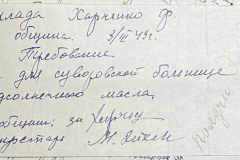 лада Харченко Ф.
община. 3/III 43г.
Требование
для суворовской больнице
дсолнечного масла.
общат: за
кретарь М.